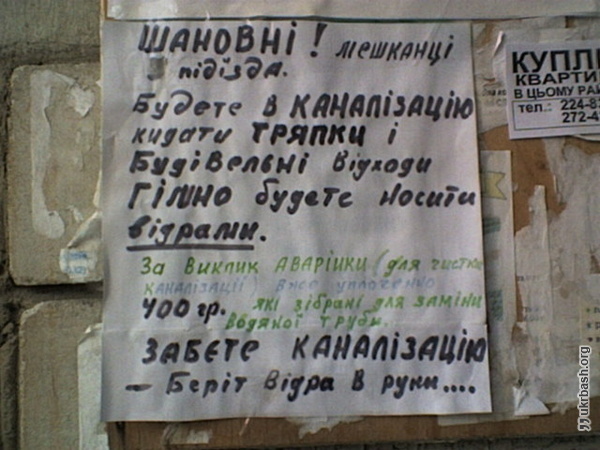 ШАНОВНІ! мешканці
3 підїзда.
Будете в КАНАЛІЗАЦІЮ
кидати ТРЯПКИ і
БудІВельні Відходи
ГІМНО будете Носити
відрами.
За Виклик АВАРІЙКИ (для чистки
КАНАЛІЗАЦІЇ) вже уплоченно
400 гр. які зібрані для заміни
водяної трубы.
ЗАБЄТЕ КАНАЛІЗАЦІЮ
– Беріт Відра В руки....
КУПЛ
КВАРТИ
В ЦЬОМУ РАЙ
тел.: 224-8
272-4
ukrbash.org